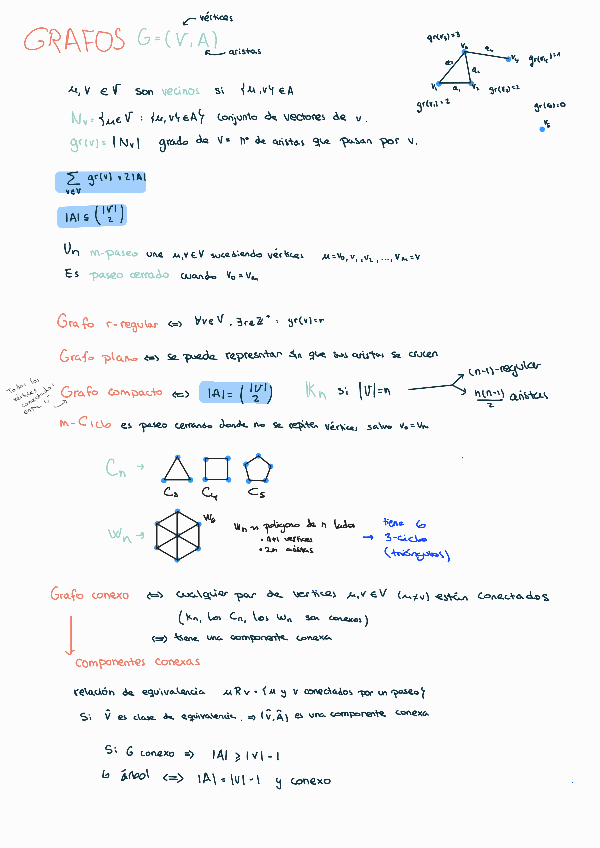 vértices
GRAFOS G=(V,A)
aristas
gr(v₃)=3
v₃
a₄
v₄
gr(v₄)=1
a₂
v₁
a₁
v₂
gr(v₂)=2
gr(v₁)=2
gr(G)=0
v₅
u,v ∈ V son vecinos si {u,v} ∈ A
Nv = {u∈V : {u,v}∈A} conjunto de vectores de v.
gr(v) = |Nv| grado de V = nº de aristas que pasan por v.
∑ gr(v) = 2|A|
v∈V
|A| ≤ (|V| 2)
Un m-paseo une u,v∈V sucediendo vértices u=v₀,v₁,v₂,...,vₘ=v
Es paseo cerrado cuando v₀=vₘ
Grafo r-regular ⇔ ∀v∈V, ∃r∈Z⁺ : gr(v)=r
Grafo plano ⇔ se puede represntar sin que sus aristas se crucen
Todos los vértices conectados entre sí
Grafo compacto ⇔ |A| = (|V| 2) Kn si |V|=n
(n-1)-regular
n(n-1)/2 aristas
m-Ciclo es paseo cerrando donde no se repiten vértices salvo v₀=vₘ
Cn →
C₃ C₄ C₅
Wn →
W₆
Wn ≈ polígono de n lados
• n+1 vértices
• 2n aristas
→ tiene 6
3-ciclo
(triángulos)
Grafo conexo ⇔ cualquier par de vertices u,v∈V (u≠v) están conectados
(Kn, los Cn, los Wn son conexos)
⇔ tiene una componente conexa
componentes conexas
relación de equivalencia uRv = {u y v conectados por un paseo}
Si V̂ es clase de equivalencia ⇒ (V̂,Â) es una componente conexa
Si G conexo ⇒ |A| ≥ |V|-1
G árbol ⇔ |A| = |V|-1 y conexo